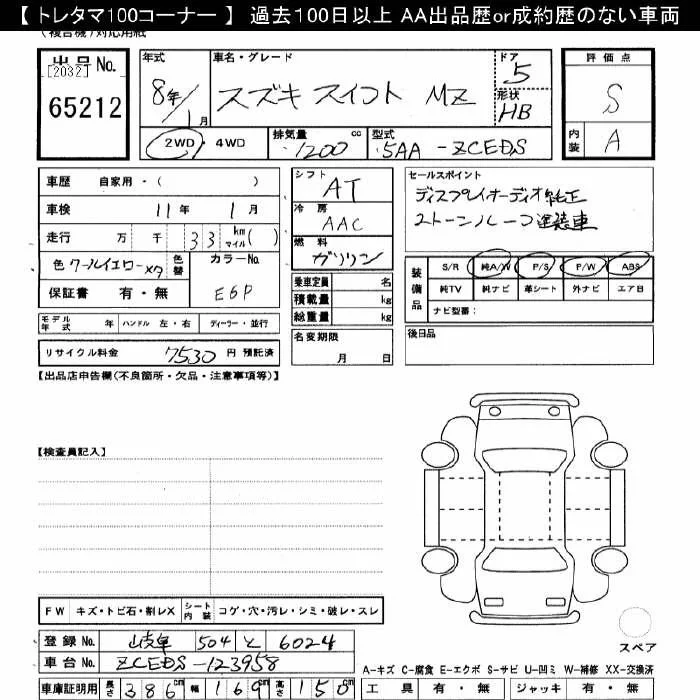 【 トレタマ100コーナー 】 過去100日以上 AA出品歴or成約歴のない車両
(複合機)対応用紙
出品No.
[2032]
65212
年式
8年/1月
車名・グレード
スズキ スイフト MZ
ドア
5
形状
HB
評価点
S
内装
A
2WD・4WD
排気量
1200 cc
型式
5AA-ZCEDS
車歴 自家用・( )
車検 11年 1月
走行 万 千 33 km マイル( )
色 クールイエローメタ 色替
カラーNo.
E6P
保証書 有・無
シフト
AT
冷房
AAC
燃料
ガソリン
乗車定員 名
積載量 kg
総重量 kg
セールスポイント
ディスプレイオーディオ純正
2トーンルーフ塗装車
装備品
S/R 純A/W P/S P/W ABS
純TV 純ナビ 革シート 外ナビ エア日
ナビ型番:
モデル年式 年 ハンドル 左・右 ディーラー・並行
名変期限
月 日
後日品
リサイクル料金 7530 円 預託済
【出品店申告欄(不良箇所・欠品・注意事項等)】
【検査員記入】
FW キズ・トビ石・割レX シート内装 コゲ・穴・汚レ・シミ・破レ・スレ
登録No. 岐阜 504 と 6024
車台No. ZCEDS-123958
車庫証明用 長さ 386cm 幅 169cm 高さ 150cm
スペア
A-キズ C-腐食 E-エクボ S-サビ U-凹ミ W-補修 XX-交換済
工具 有・無 ジャッキ 有・無